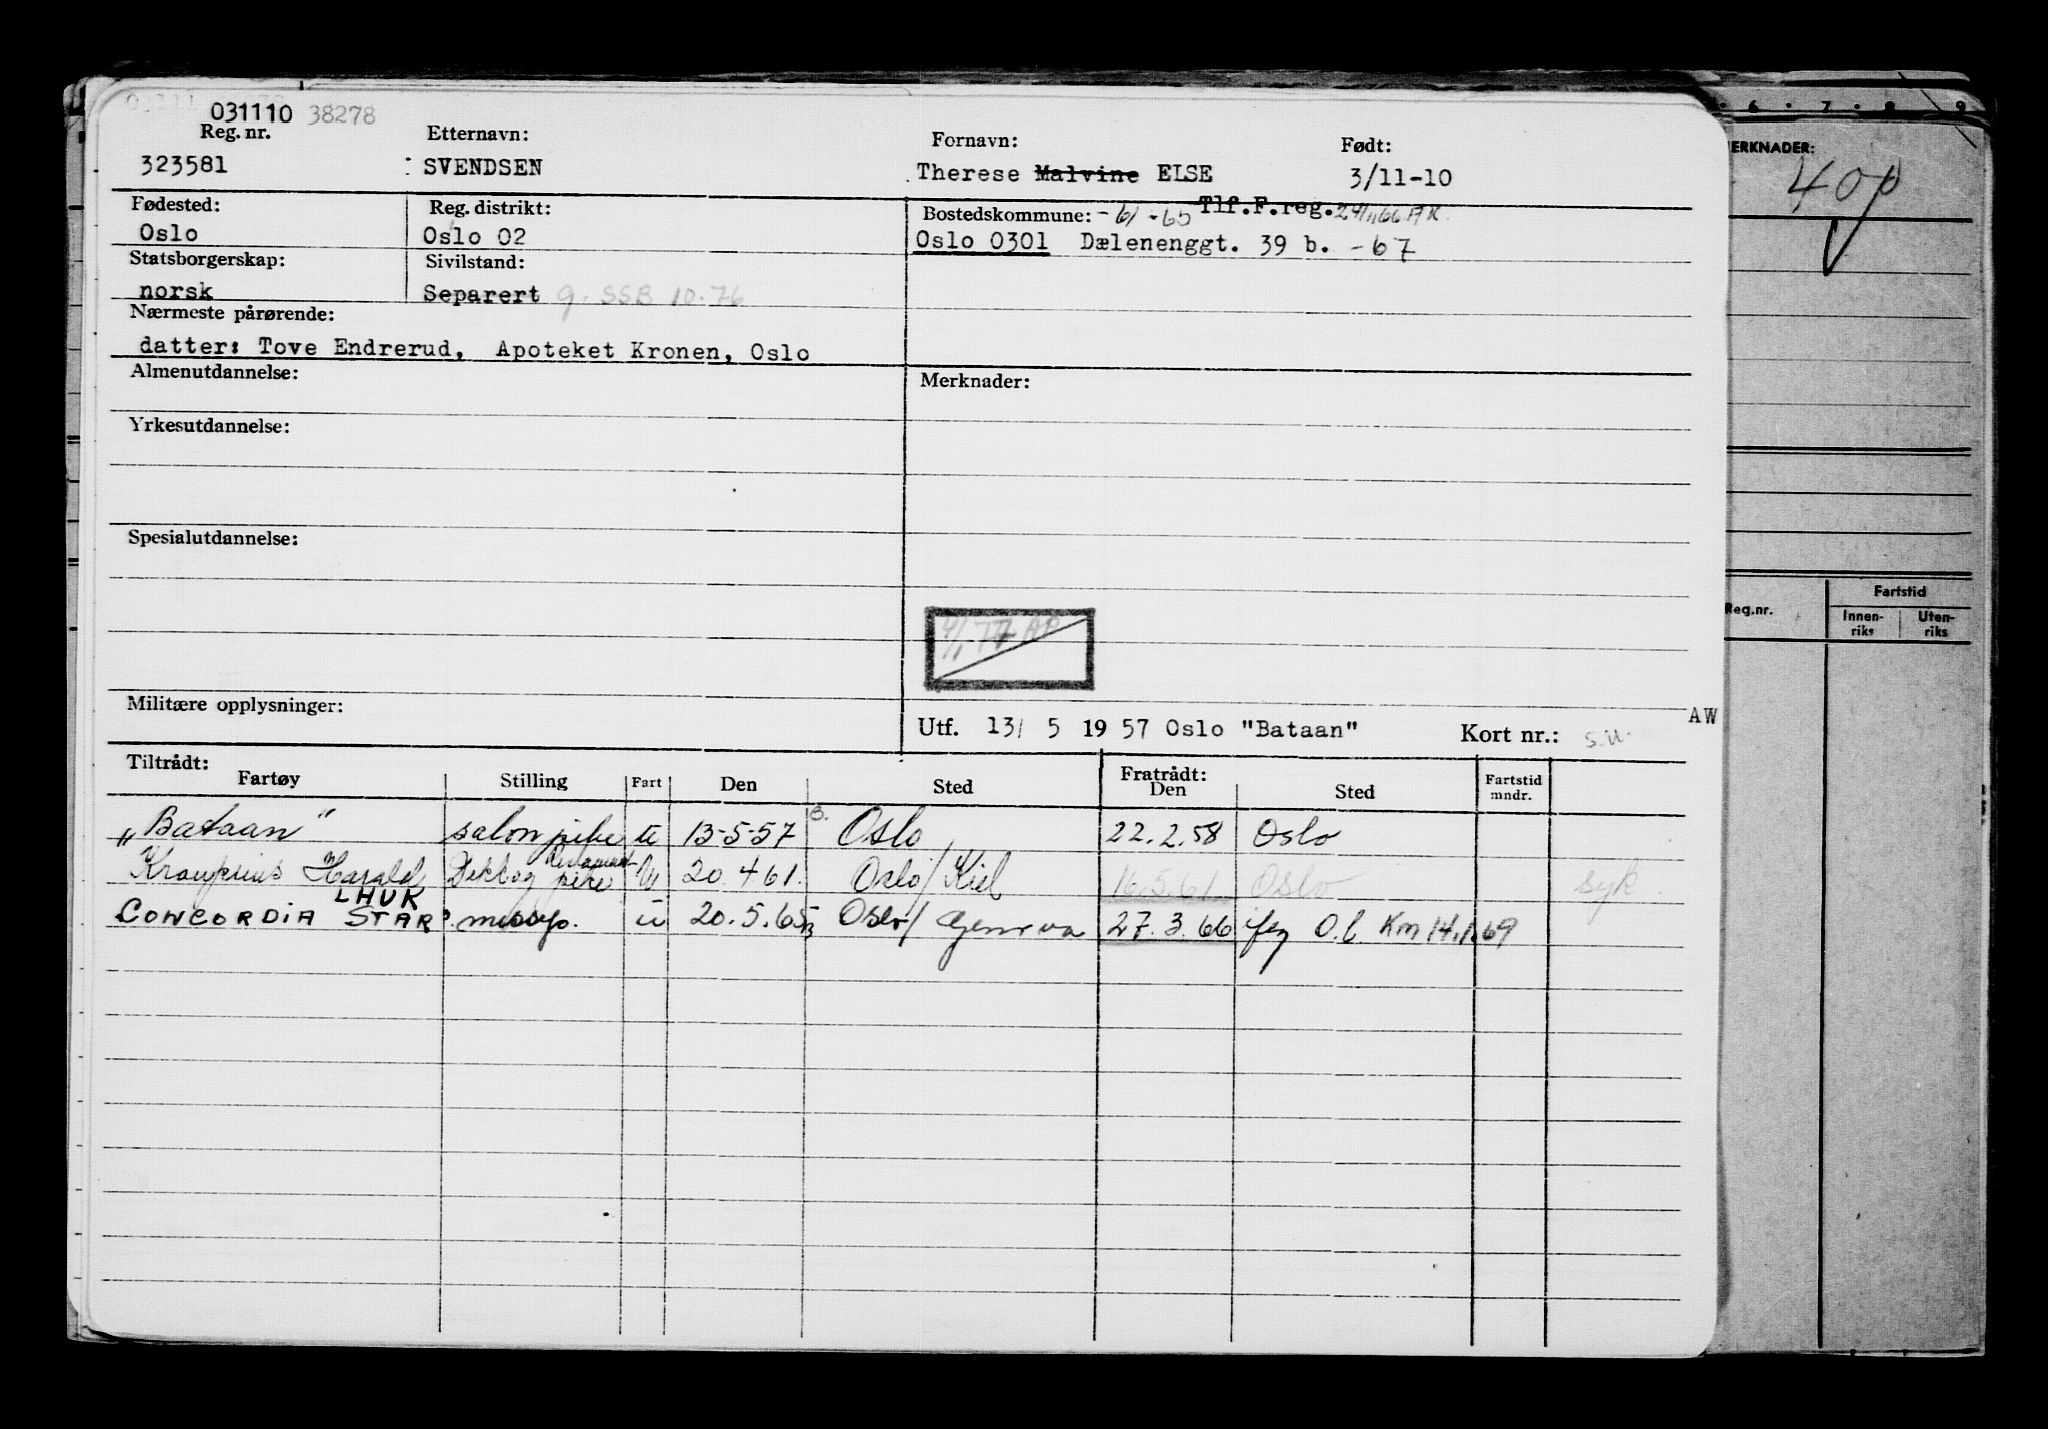 031110 38278
Reg. nr. Etternavn: Fornavn: Født:
323581 SVENDSEN Therese Malvine ELSE 3/11-10
Fødested: Reg. distrikt: Bostedskommune: -61 -65 Tlf.F.reg. 24/11 66 AR.
Oslo Oslo 02 Oslo 0301 Dælenenggt. 39 b. -67
Statsborgerskap: Sivilstand:
norsk Separert g. SSB 10.76
Nærmeste pårørende:
datter: Tove Endrerud, Apoteket Kronen, Oslo
Almenutdannelse: Merknader:
Yrkesutdannelse:
Spesialutdannelse:
4/1 77 AP
Militære opplysninger:
Utf. 13/ 5 19 57 Oslo "Bataan" Kort nr.: s.u. AW
Tiltrådt: Fratrådt:
Fartøy Stilling Fart Den Sted Den Sted Fartstid mndr.
"Bataan" salonpike u 13-5-57 Oslo 22.2.58 Oslo
Kronprins Harald 20.4 61. Oslo/Kiel 16.5.61 Oslo syk.
LHUK
CONCORDIA STAR messp. u 20.5.65 Oslo/ Genova 27.3.66 O.l. Km 14.1.69
6 · 7 · 8 9
MERKNADER:
40p
Reg.nr. Fartstid
Innen-riks Uten-riks